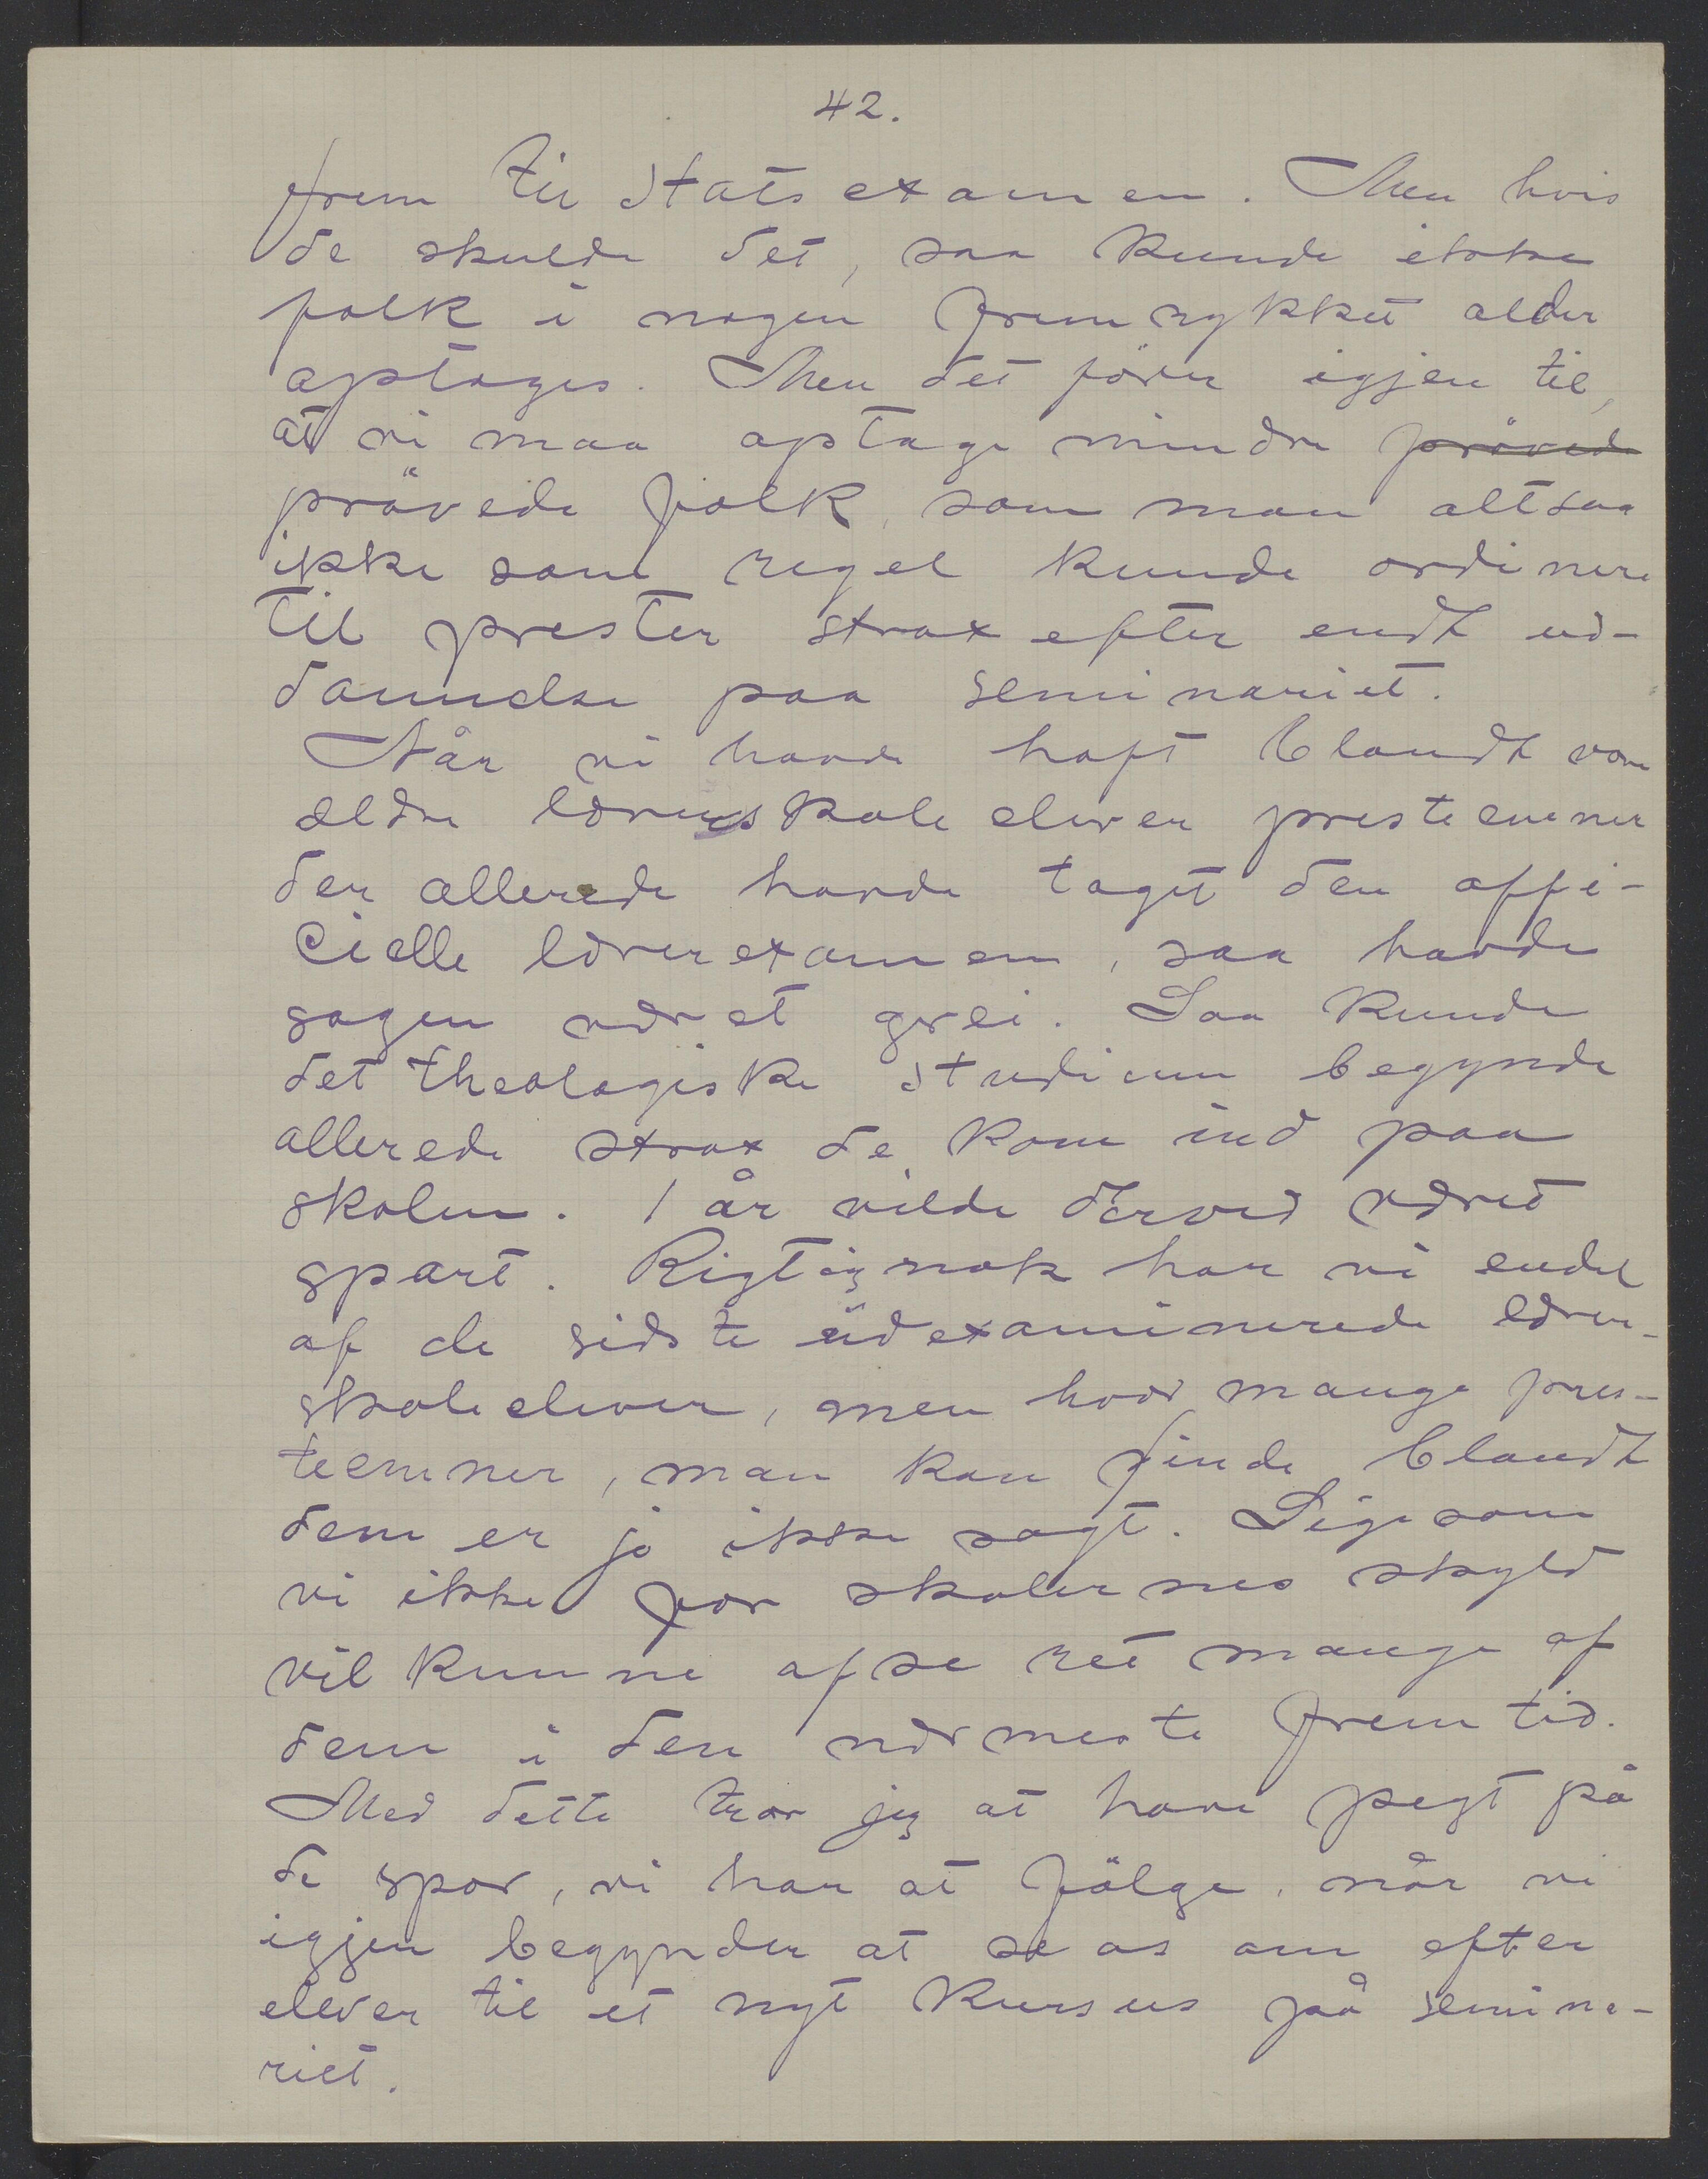 42.
frem til Statsexamen. Men hvis
de skulde det, saa kunde ikke
folk i nogen fremrykket alder
optoges. Men det förer igjen til,
at vi maa optage mindre prövede
prövede folk, som man altsaa
ikke som regel kunde ordinere
til prester strax efter endt ud-
dannelse paa seminariet.
Når vi havde haft blandt vore
ældre lærerskoleelever presteemner
der allerede havde taget den offi-
cielle lærerexamen, saa havde
sagen været grei. Saa kunde
det theologiske studium begynde
allerede strax de kom ind paa
skolen. 1 år vilde derved været
spart. Rigtignok har vi endel
af de sidste udexaminerede lærer-
skoleelever, men hvor mange pres-
teemner, man kan finde blandt
dem er jo ikke sagt. Ligesom
vi ikke for skolernes skyld
vil kunne afse ret mange af
dem i den nærmeste fremtid.
Med dette tror jeg at have pegt på
de spor, vi har at fölge, når vi
igjen begynder at se os om efter
elever til et nyt kursus på semina-
riet.